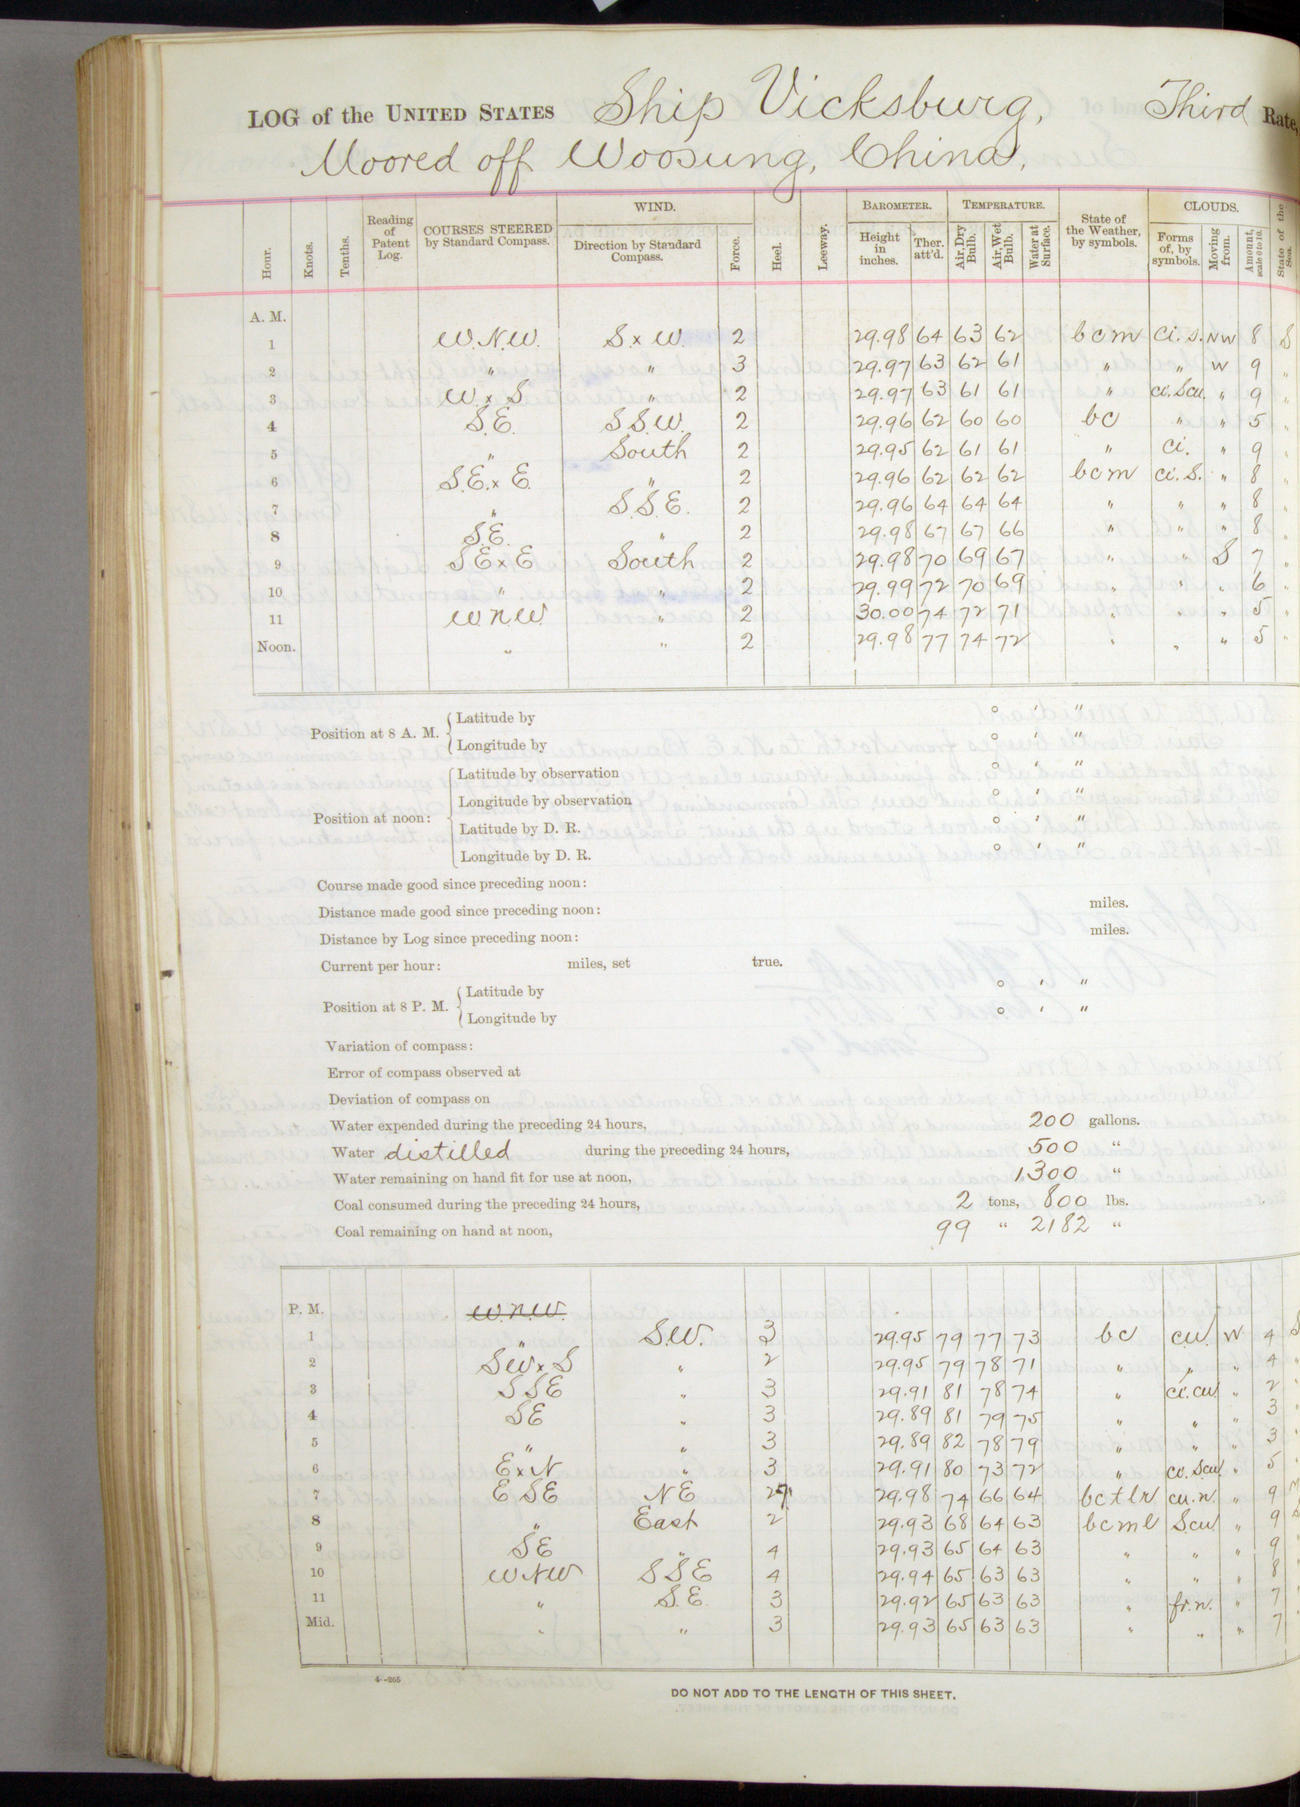 LOG of the UNITED STATES Ship Vicksburg, Third Rate,
Moored off Woosung, China,
Hour. Knots. Tenths. Reading of Patent Log. COURSES STEERED by Standard Compass. WIND. Direction by Standard Compass. Force. Heel. Leeway. BAROMETER. Height in inches. Ther. att'd. TEMPERATURE. Air, Dry Bulb. Air, Wet Bulb. Water at Surface. State of the Weather, by symbols. CLOUDS. Forms of, by symbols. Moving from. Amount, scale 0 to 10. State of the Sea.
A. M.
1 W.N.W. S.x W. 2 29.98 64 63 62 bcm ci.s. NW 8 S
2 " " 3 29.97 63 62 61 " " W 9 "
3 W x S " 2 29.97 63 61 61 " ci.Scu. " 9 "
4 S.E. S.S.W. 2 29.96 62 60 60 bc " " 5 "
5 " South 2 29.95 62 61 61 " ci. " 9 "
6 S.E. x E. " 2 29.96 62 62 62 bcm ci.S. " 8 "
7 " S.S.E. 2 29.96 64 64 64 " " " 8 "
8 S.E. " 2 29.98 67 67 66 " " " 8 "
9 S E x E South 2 29.98 70 69 67 " " S 7 "
10 " " 2 29.99 72 70 69 " " " 6 "
11 W.N.W. " 2 30.00 74 72 71 " " " 5 "
Noon. " " 2 29.98 77 74 72 " " " 5 "
Position at 8 A. M. Latitude by ° ' "
Longitude by ° ' "
Position at noon: Latitude by observation ° ' "
Longitude by observation ° ' "
Latitude by D. R. ° ' "
Longitude by D. R. ° ' "
Course made good since preceding noon:
Distance made good since preceding noon: miles.
Distance by Log since preceding noon: miles.
Current per hour: miles, set true.
Position at 8 P. M. Latitude by ° ' "
Longitude by ° ' "
Variation of compass:
Error of compass observed at
Deviation of compass on
Water expended during the preceding 24 hours, 200 gallons.
Water distilled during the preceding 24 hours, 500 "
Water remaining on hand fit for use at noon, 1,300 "
Coal consumed during the preceding 24 hours, 2 tons, 800 lbs.
Coal remaining on hand at noon, 99 " 2182 "
P. M. W.N.W.
1 " S.W. 3 29.95 79 77 73 bc cu. W 4 S
2 SW x S " 2 29.95 79 78 71 " " " 4 "
3 SSE " 3 29.91 81 78 74 " ci.cu " 2 "
4 SE " 3 29.89 81 79 75 " " " 3 "
5 " " 3 29.89 82 78 79 " " " 3 "
6 E x N " 3 29.91 80 73 72 " cu.Scu " 5 "
7 E SE NE 29.98 74 66 64 bctlr cu.n. " 9
8 " East 2 29.93 68 64 63 bcml Scu " 9
9 SE " 4 29.93 65 64 63 " " " 9 "
10 WNW SSE 4 29.94 65 63 63 " " " 8 "
11 " S.E. 3 29.92 65 63 63 " fr.n. " 7 "
Mid. " " 3 29.93 65 63 63 " " " 7 "
4--265
DO NOT ADD TO THE LENGTH OF THIS SHEET.